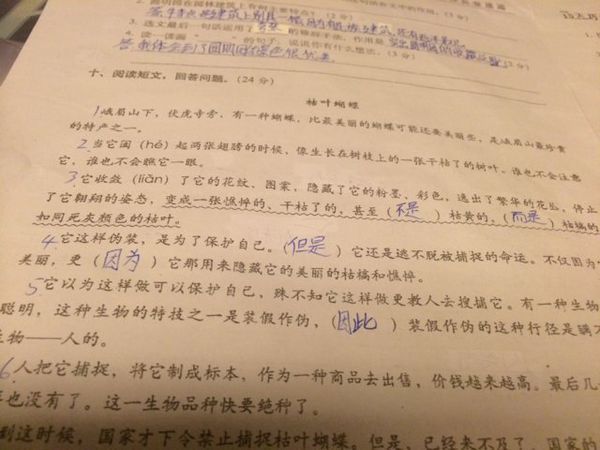 3. 选文最后一句话运用了
的修辞手法，作用是
4. 读一读画“　　”的句子，说说你有什么想法。（3分）
十、阅读短文，回答问题。（24分）
枯叶蝴蝶
1峨眉山下，伏虎寺旁，有一种蝴蝶，比最美丽的蝴蝶可能还要美丽些，是峨眉山最珍贵
的特产之一。
2.当它阖（hé）起两张翅膀的时候，像生长在树枝上的一张干枯了的树叶。谁也不会注意
它，谁也不会瞧它一眼。
3它收敛（liǎn）了它的花纹、图案，隐藏了它的粉墨、彩色，逸出了繁华的花丛，停止
了它翱翔的姿态，变成一张憔悴的，干枯了的，甚至（不是）枯黄的，（而是）枯槁的，
如同死灰颜色的枯叶。
4它这样伪装，是为了保护自己。（但是）它还是逃不脱被捕捉的命运。不仅因为
美丽，更（因为）它那用来隐藏它的美丽的枯槁和憔悴。
5它以为这样做可以保护自己，殊不知它这样做更教人去搜捕它。有一种生物
聪明，这种生物的特技之一是装假作伪，（因此）装假作伪的这种行径是瞒不
生物——人的。
6人把它捕捉，将它制成标本，作为一种商品去出售，价钱越来越高。最后几
也没有了。这一生物品种快要绝种了。
到这时候，国家才下令禁止捕捉枯叶蝴蝶。但是，已经来不及了。国家的